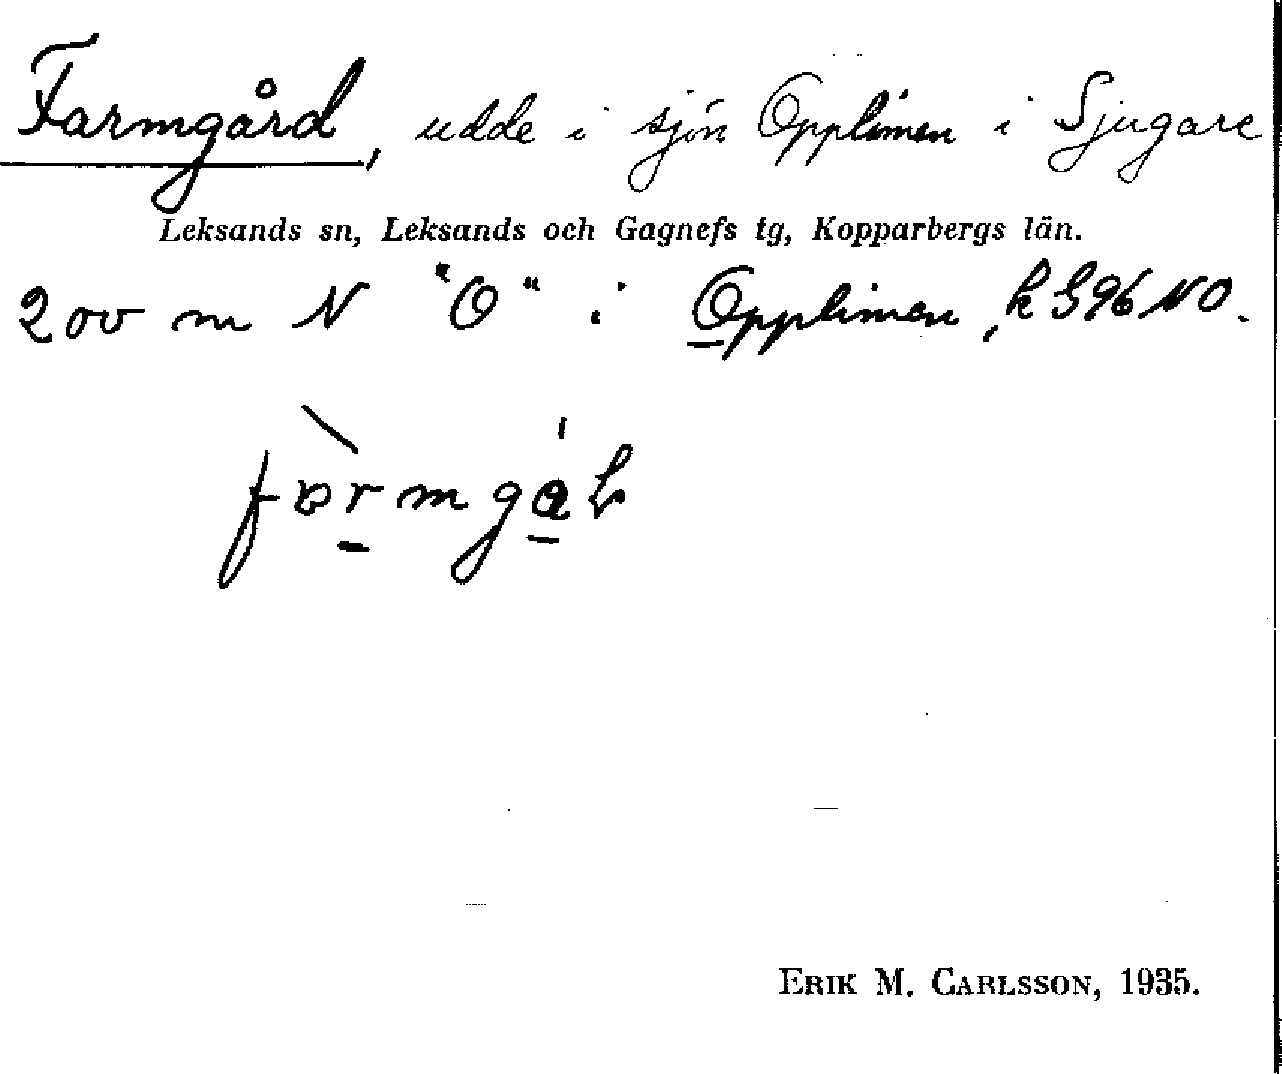 Farmgård, udde i sjön Opplimen i Sjugare
Leksands sn, Leksands och Gagnefs tg, Kopparbergs län.
200 m N "O" i Opplimen, k S96 NO.
ERIK M. CARLSSON, 1935.